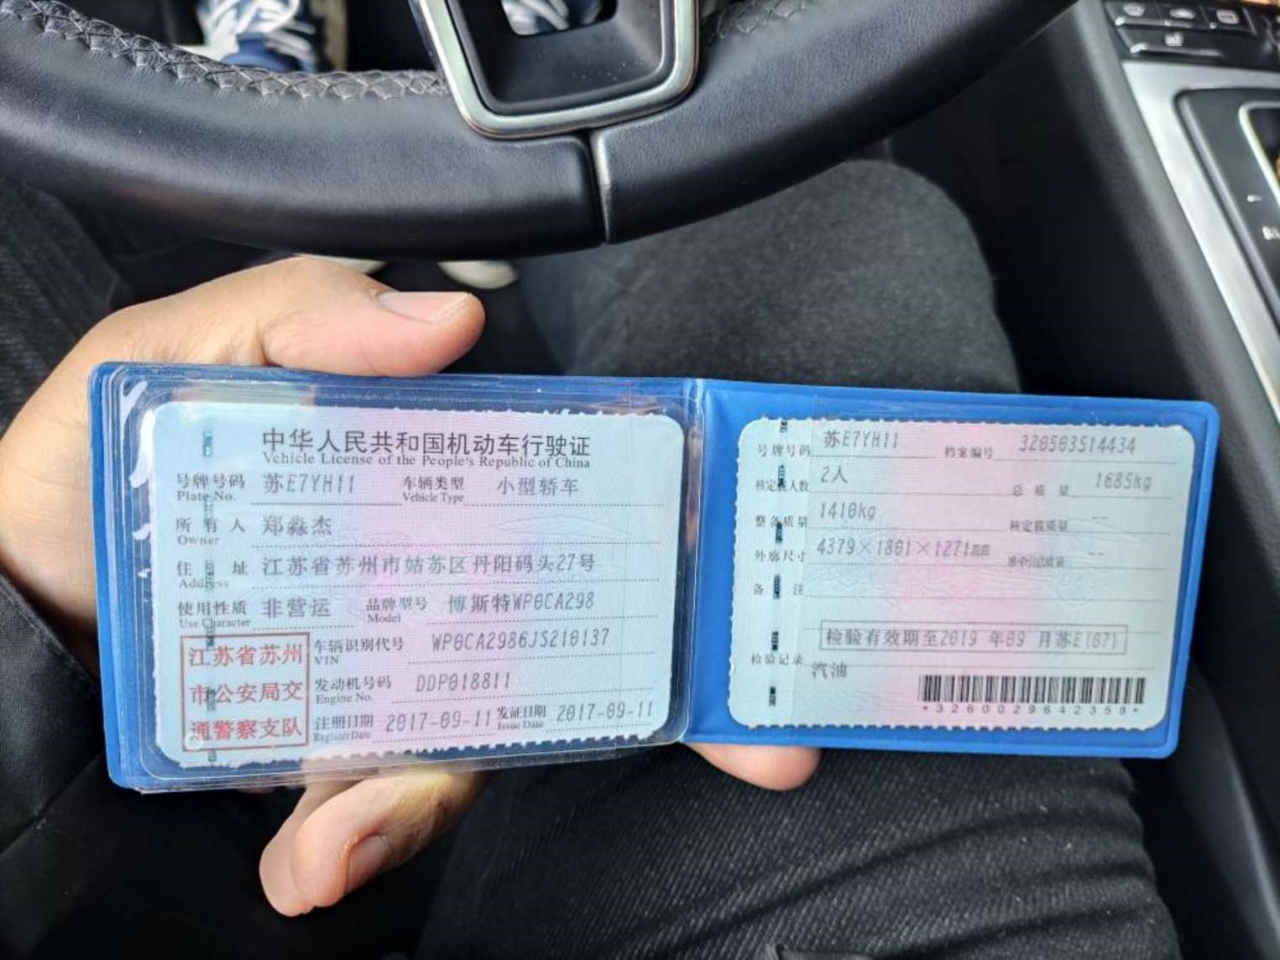 中华人民共和国机动车行驶证
Vehicle License of the People's Republic of China
号牌号码 苏E7YH11 车辆类型 小型轿车
Plate No. Vehicle Type
所有人 郑淼杰
Owner
住址 江苏省苏州市姑苏区丹阳码头27号
Address
使用性质 非营运 品牌型号 博斯特WP0CA298
Use Character Model
江苏省苏州
市公安局交
通警察支队
车辆识别代号 WP0CA2986JS210137
VIN
发动机号码 DDP018811
Engine No.
注册日期 2017-09-11 发证日期 2017-09-11
Register Date Issue Date
号牌号码 苏E7YH11 档案编号 320503514434
核定载人数 2人 总质量 1685kg
整备质量 1410kg 核定载质量 --
外廓尺寸 4379×1801×1271mm 准牵引总质量 --
备注
检验有效期至2019 年09 月苏E(07)
检验记录 汽油
*3260029642358*